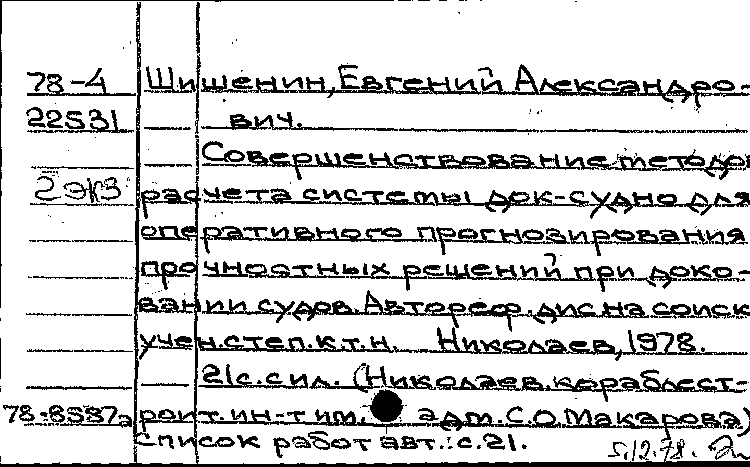 78-4 Шишенин, Евгений Александро-
22531 вич.
Совершенствование методов
2 экз расчета системы док-судно для
оперативного прогнозирования
прочностных решений при доко-
вании судов. Автореф. дис на соиск
учен. степ. к.т.н. Николаев, 1978.
21с. с ил. (Николаев. кораблест-
78-8587а роит. ин-т им. адм. С.О. Макарова)
Список работ авт.: с. 21. 5.12.78.